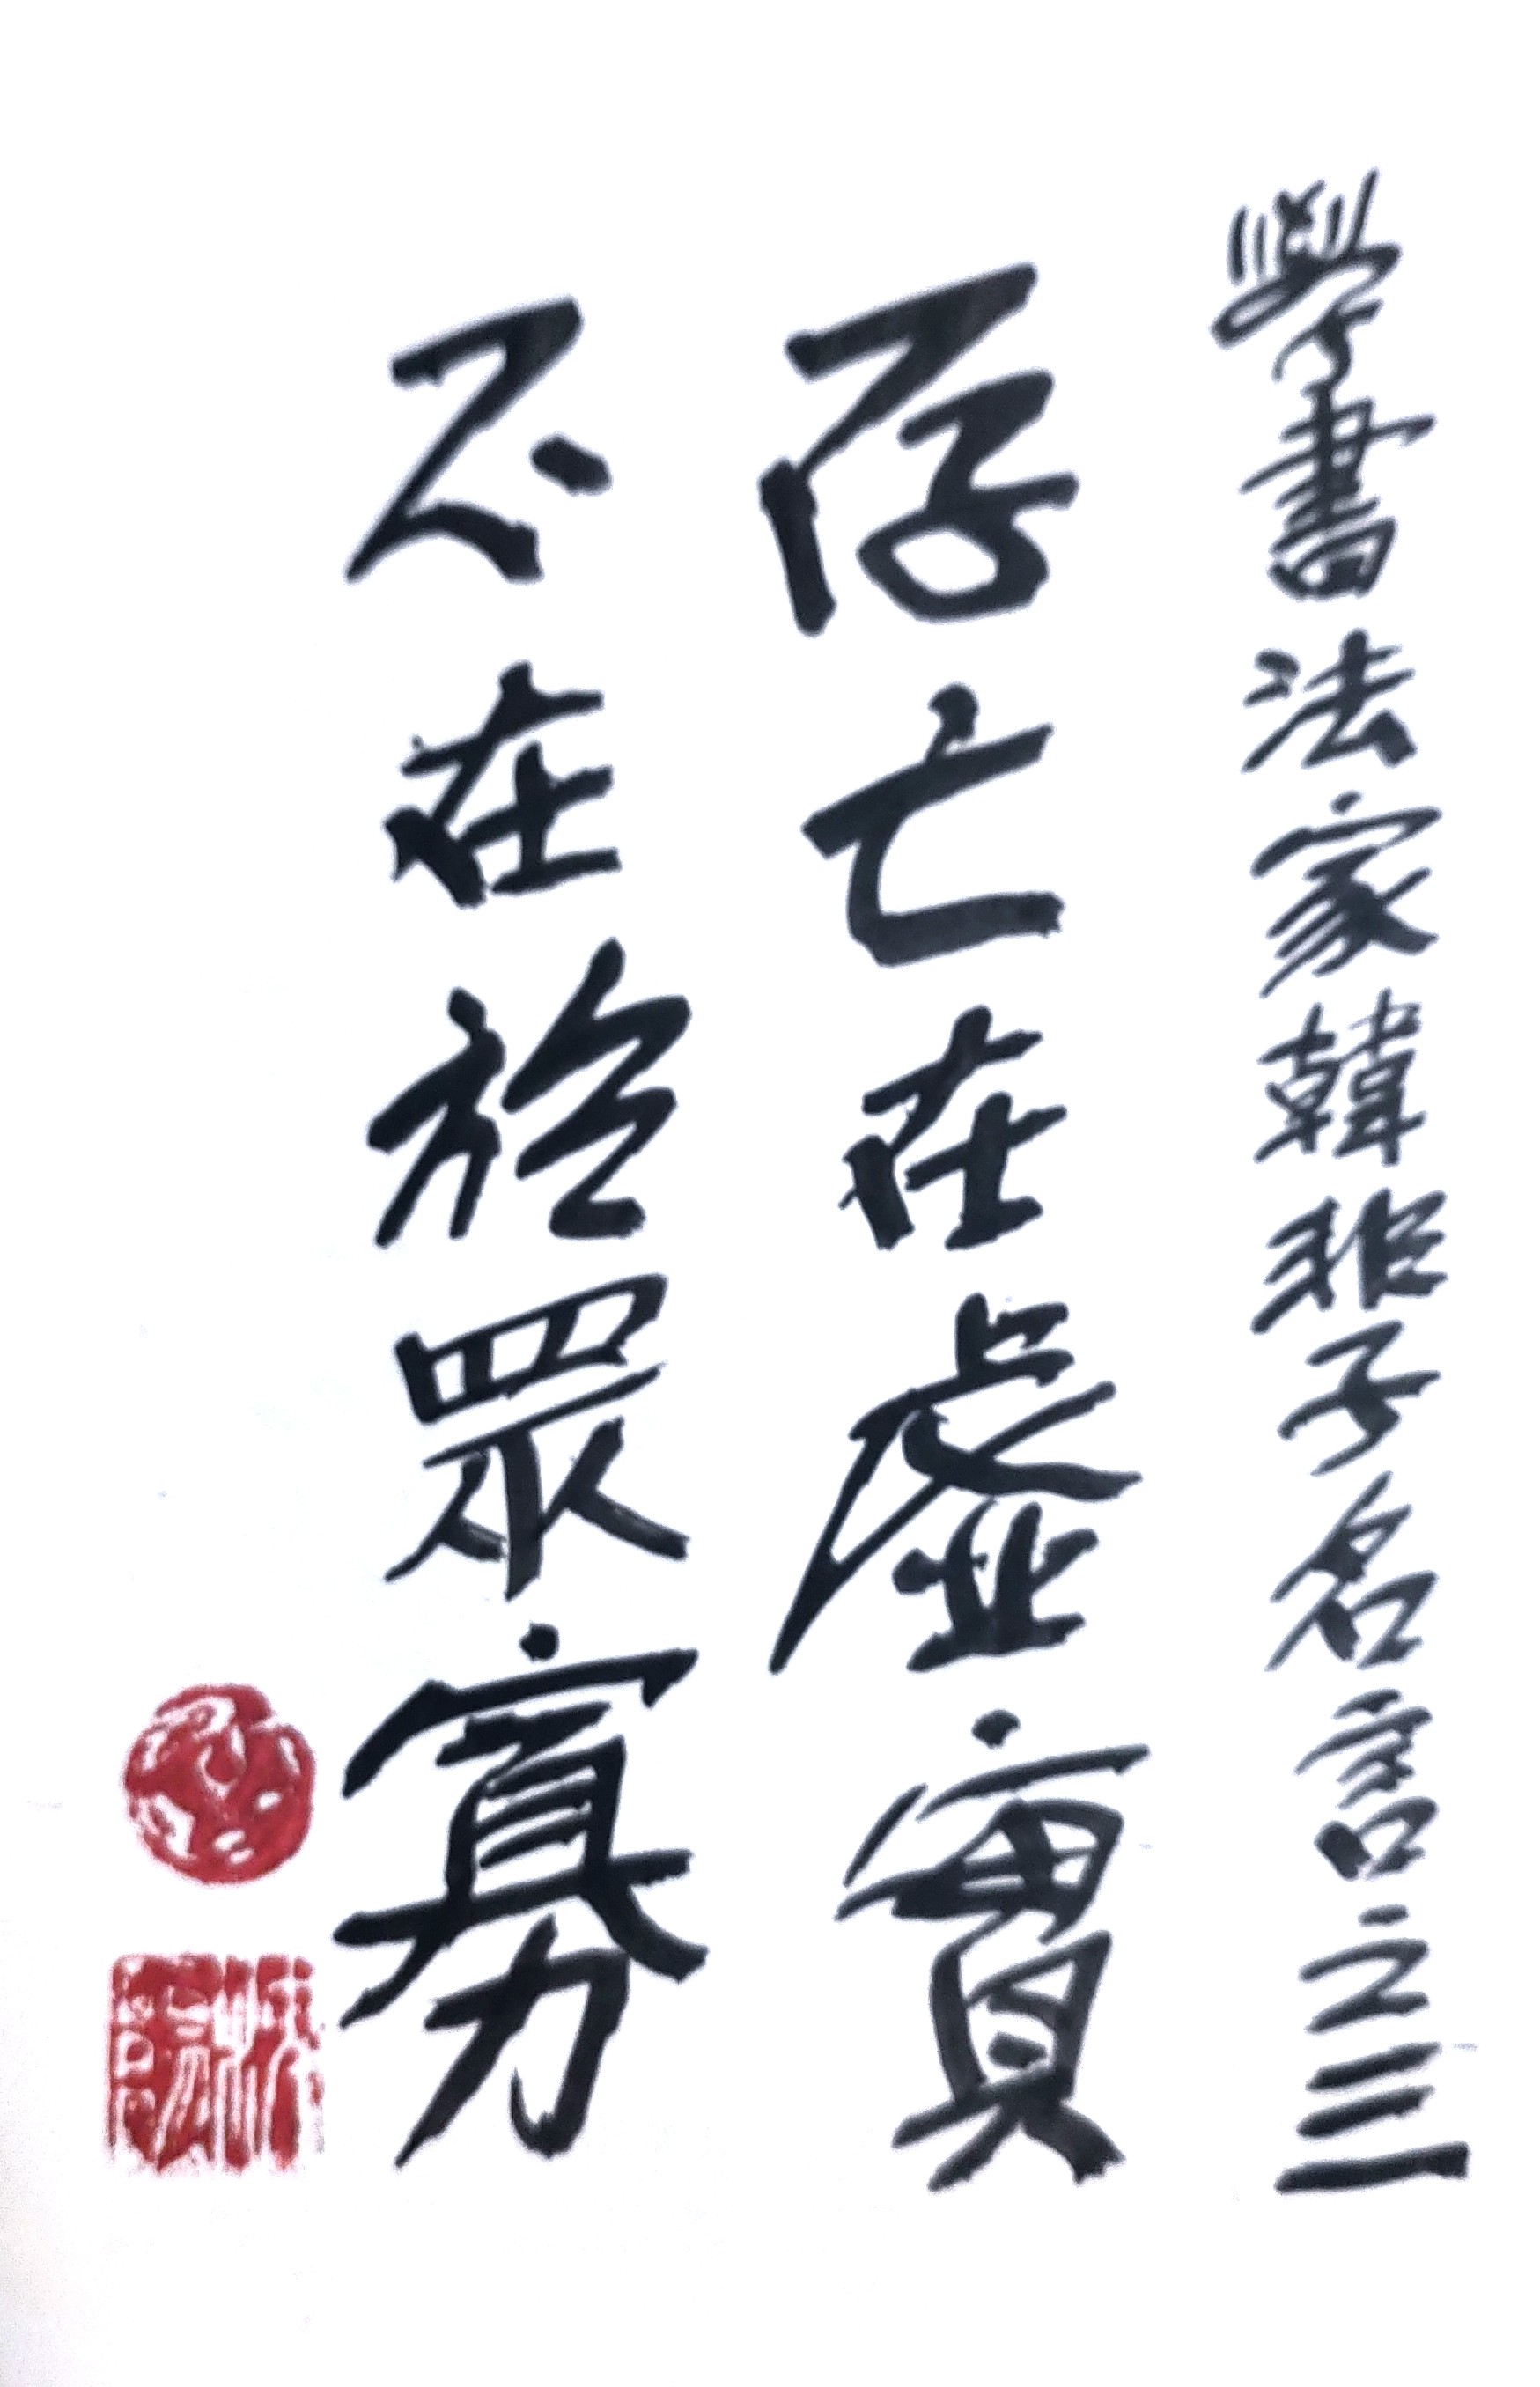 學書法家韓非子名言之三
存亡在虛實
不在於眾寡